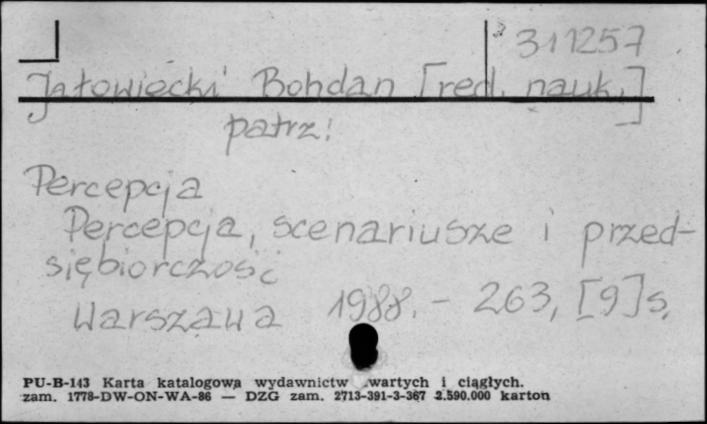 311257
Jałowiecki Bohdan [red. nauk.]
patrz:
Percepcja
Percepcja, scenariusze i przed-
siębiorczość
Warszawa 1988. - 263, [9]s.
PU-B-143 Karta katalogowa wydawnictw zwartych i ciągłych.
zam. 1778-DW-ON-WA-86 — DZG zam. 2713-391-3-367 2.590.000 karton